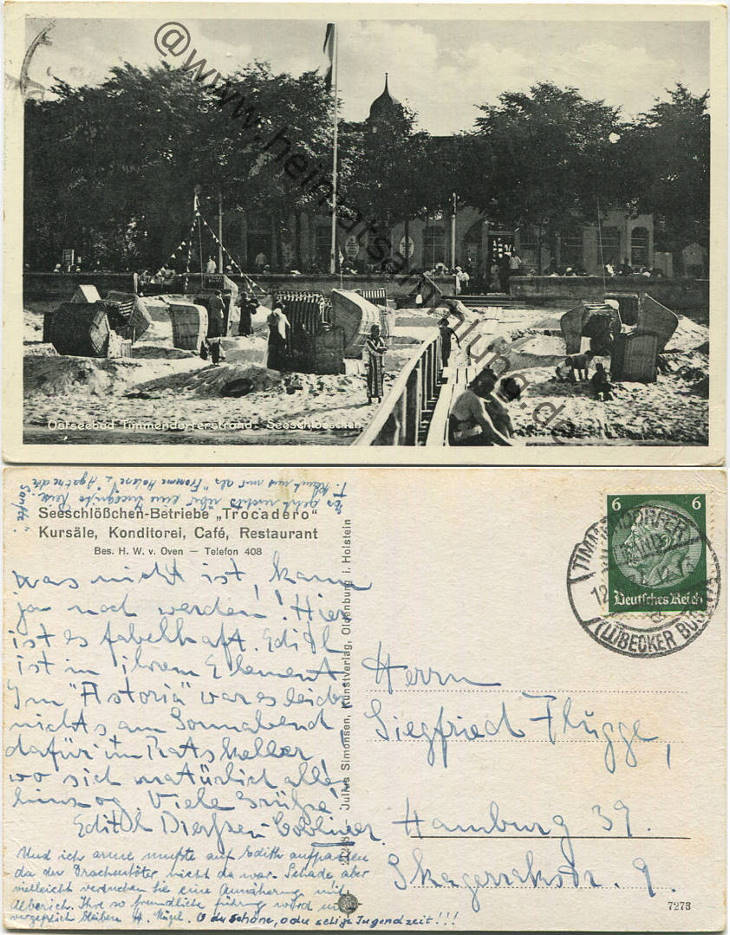 @www.heimatsammlung.de
Ostseebad Timmendorferstrand: Seeschlösschen
Es geht nichts über eine kurze Reise
T. Klub uns mit als "Fromme Helene" u. Agathe die
Sanfte!
Seeschlößchen-Betriebe „Trocadero"
Kursäle, Konditorei, Café, Restaurant
Bes. H. W. v. Oven — Telefon 408
was nicht ist, kann
ja noch werden! Hier
ist es fabelhaft. Edith
ist in ihrem Element
Im "Astoria" war es leider
nichts am Sonnabend
dafür im Ratskeller,
wo sich natürlich alles
hinzog. Viele Grüße
Edith
Und ich arme mußte auf Edith aufpassen
da der Drachentöter nicht da war. Schade aber
vielleicht versuchen Sie eine Annäherung mit
Alberich. Ihre so freundliche Führung würde
unvergeßlich bleiben H. Nügel. O du schöne, o du selige Jugendzeit!!!
Julius Simonsen, Kunstverlag, Oldenburg i. Holstein
6 6
Deutsches Reich
TIMMENDORFER
12
(LÜBECKER BUCHT)
Herrn
Siegfried Flügge,
Hamburg 39.
Skagerrakstr. 9.
7273